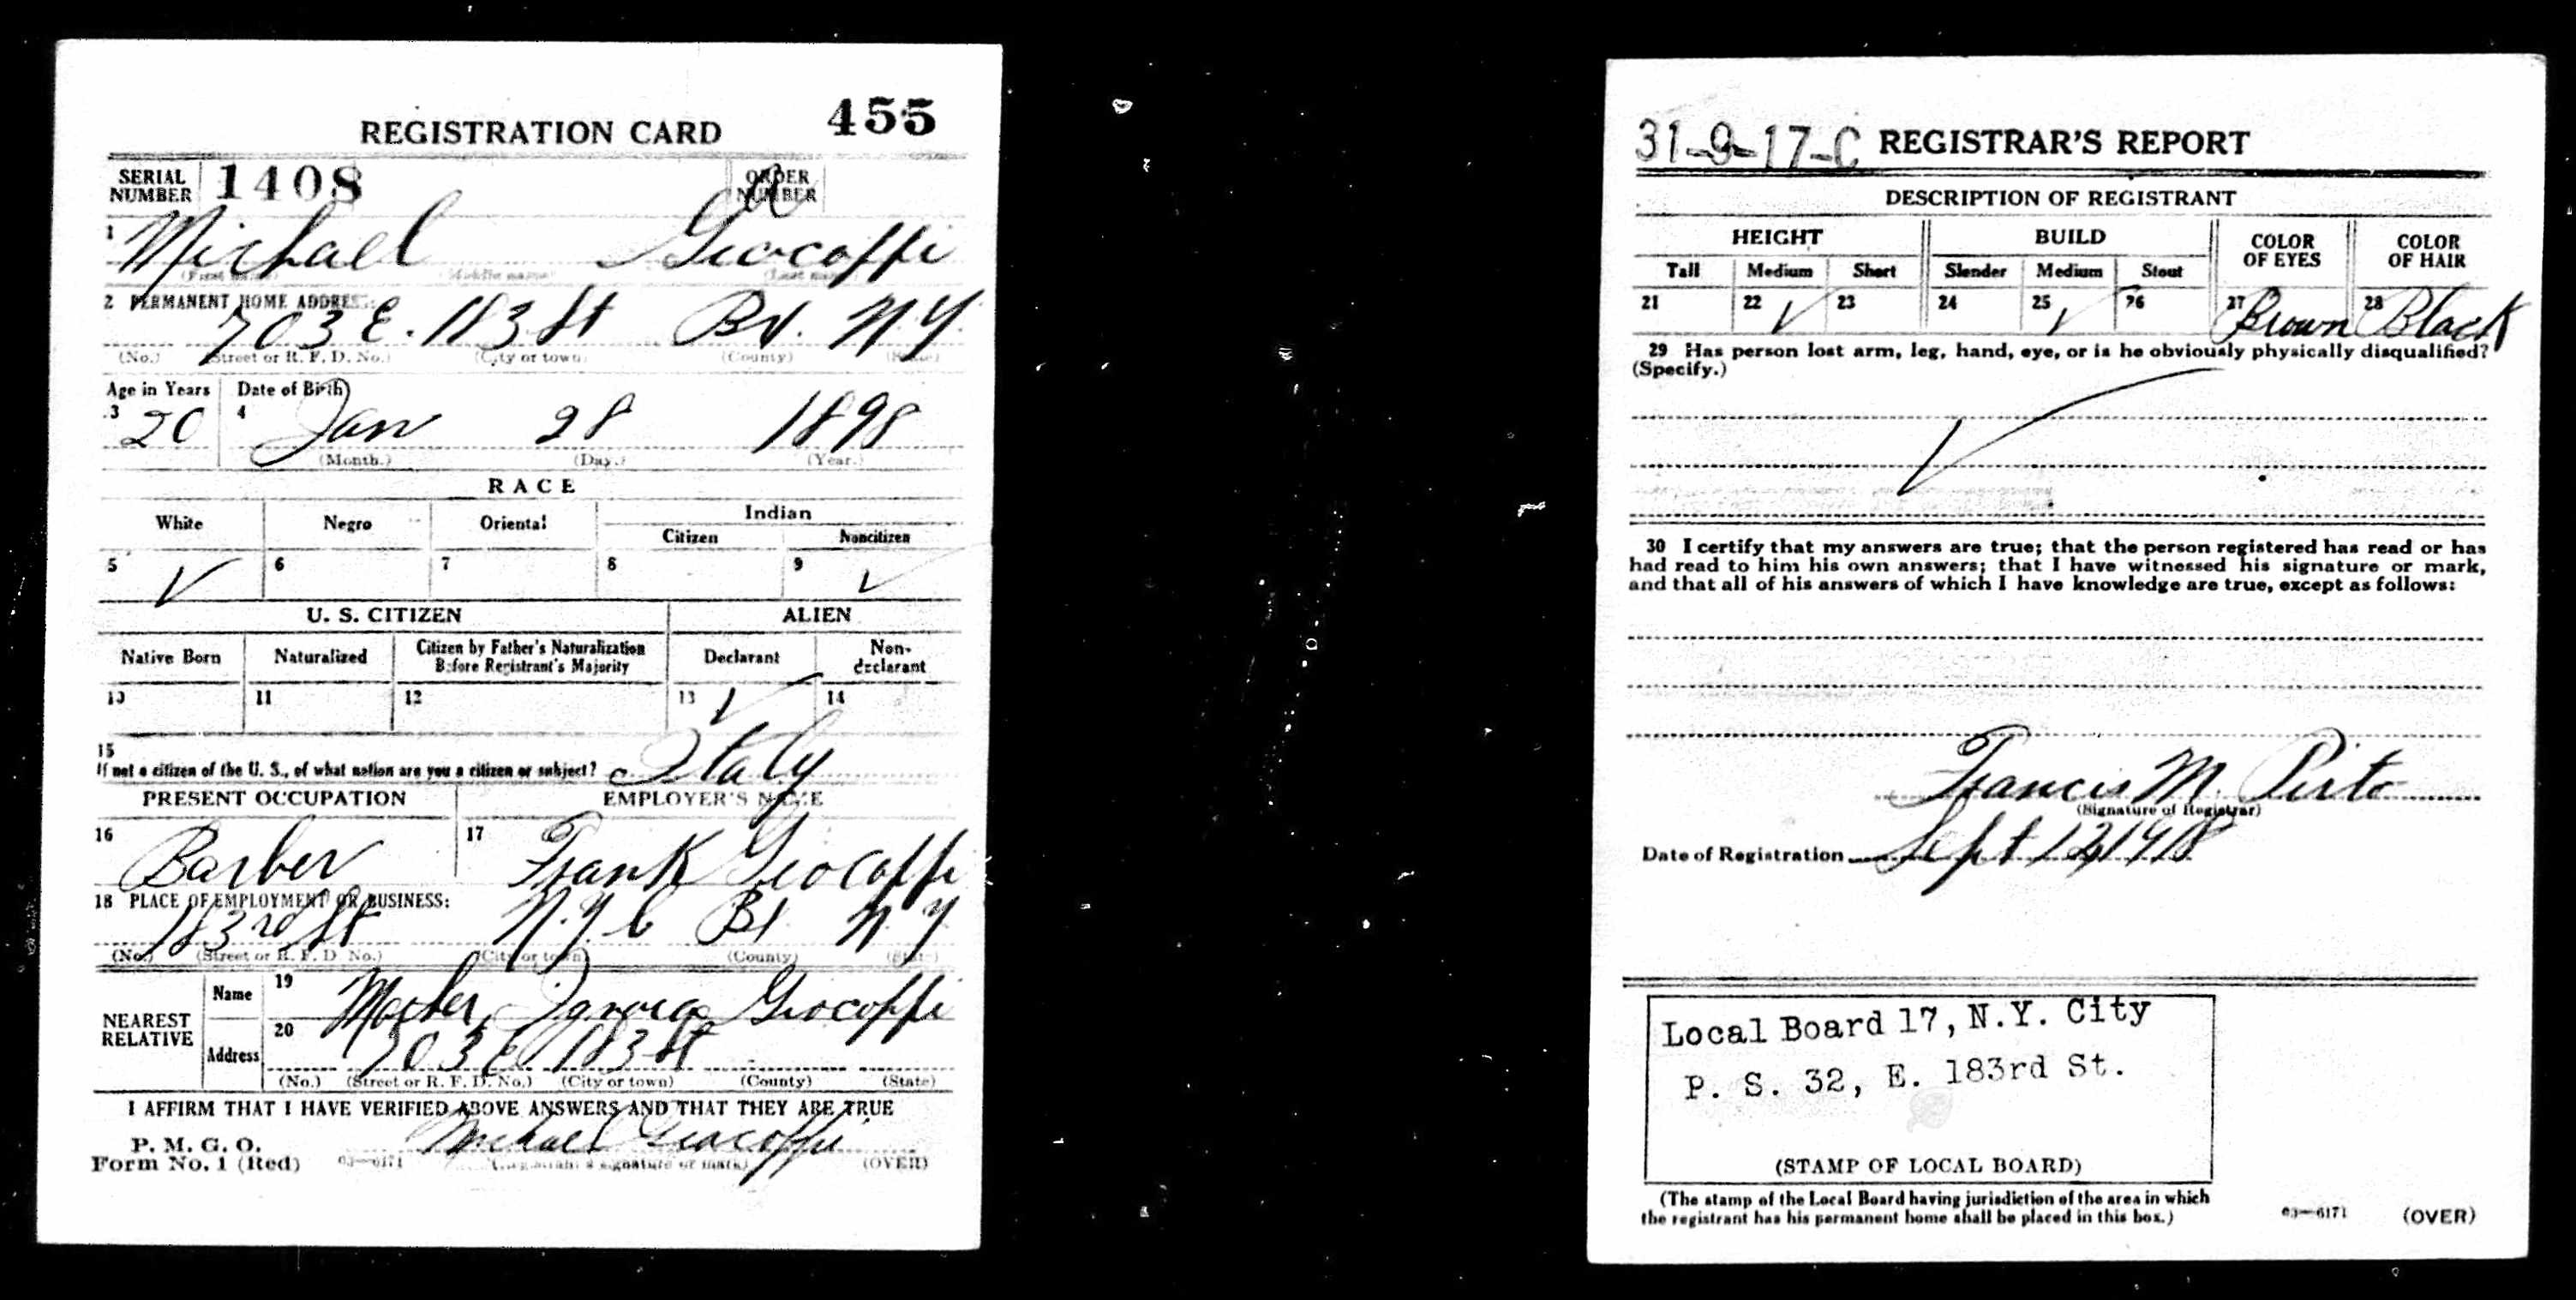 REGISTRATION CARD 455
SERIAL NUMBER 1408 ORDER NUMBER A
1 Michael Giocoffi
(First name) (Middle name) (Last name)
2 PERMANENT HOME ADDRESS:
703 E. 183 St Bx. N.Y.
(No.) (Street or R. F. D. No.) (City or town) (County) (State)
Age in Years Date of Birth
3 20 4 Jan 28 1898
(Month.) (Day.) (Year.)
RACE
White Negro Oriental Indian
Citizen Noncitizen
5 ✓ 6 7 8 9 ✓
U. S. CITIZEN ALIEN
Native Born Naturalized Citizen by Father's Naturalization Before Registrant's Majority Declarant Non-declarant
10 11 12 13 ✓ 14
15
If not a citizen of the U. S., of what nation are you a citizen or subject? Italy
PRESENT OCCUPATION EMPLOYER'S NAME
16 Barber 17 Frank Giocoffi
18 PLACE OF EMPLOYMENT OR BUSINESS:
183rd St N.Y.C Bx N.Y
(No.) (Street or R. F. D. No.) (City or town) (County) (State)
NEAREST RELATIVE
Name 19 Mother, Giocoffi
Address 20 703 E 183 St
(No.) (Street or R. F. D. No.) (City or town) (County) (State)
I AFFIRM THAT I HAVE VERIFIED ABOVE ANSWERS AND THAT THEY ARE TRUE
P. M. G. O.
Form No. 1 (Red) 03—6171 Michael Giacoffi
(Registrant's signature or mark) (OVER)
31-9-17-C REGISTRAR'S REPORT
DESCRIPTION OF REGISTRANT
HEIGHT BUILD COLOR OF EYES COLOR OF HAIR
Tall Medium Short Slender Medium Stout
21 22 ✓ 23 24 25 ✓ 26 27 Brown 28 Black
29 Has person lost arm, leg, hand, eye, or is he obviously physically disqualified?
(Specify.)
✓
30 I certify that my answers are true; that the person registered has read or has
had read to him his own answers; that I have witnessed his signature or mark,
and that all of his answers of which I have knowledge are true, except as follows:
Francis M.
(Signature of Registrar)
Date of Registration Sept 12 1918
Local Board 17, N.Y. City
P. S. 32, E. 183rd St.
(STAMP OF LOCAL BOARD)
(The stamp of the Local Board having jurisdiction of the area in which
the registrant has his permanent home shall be placed in this box.)
03—6171 (OVER)